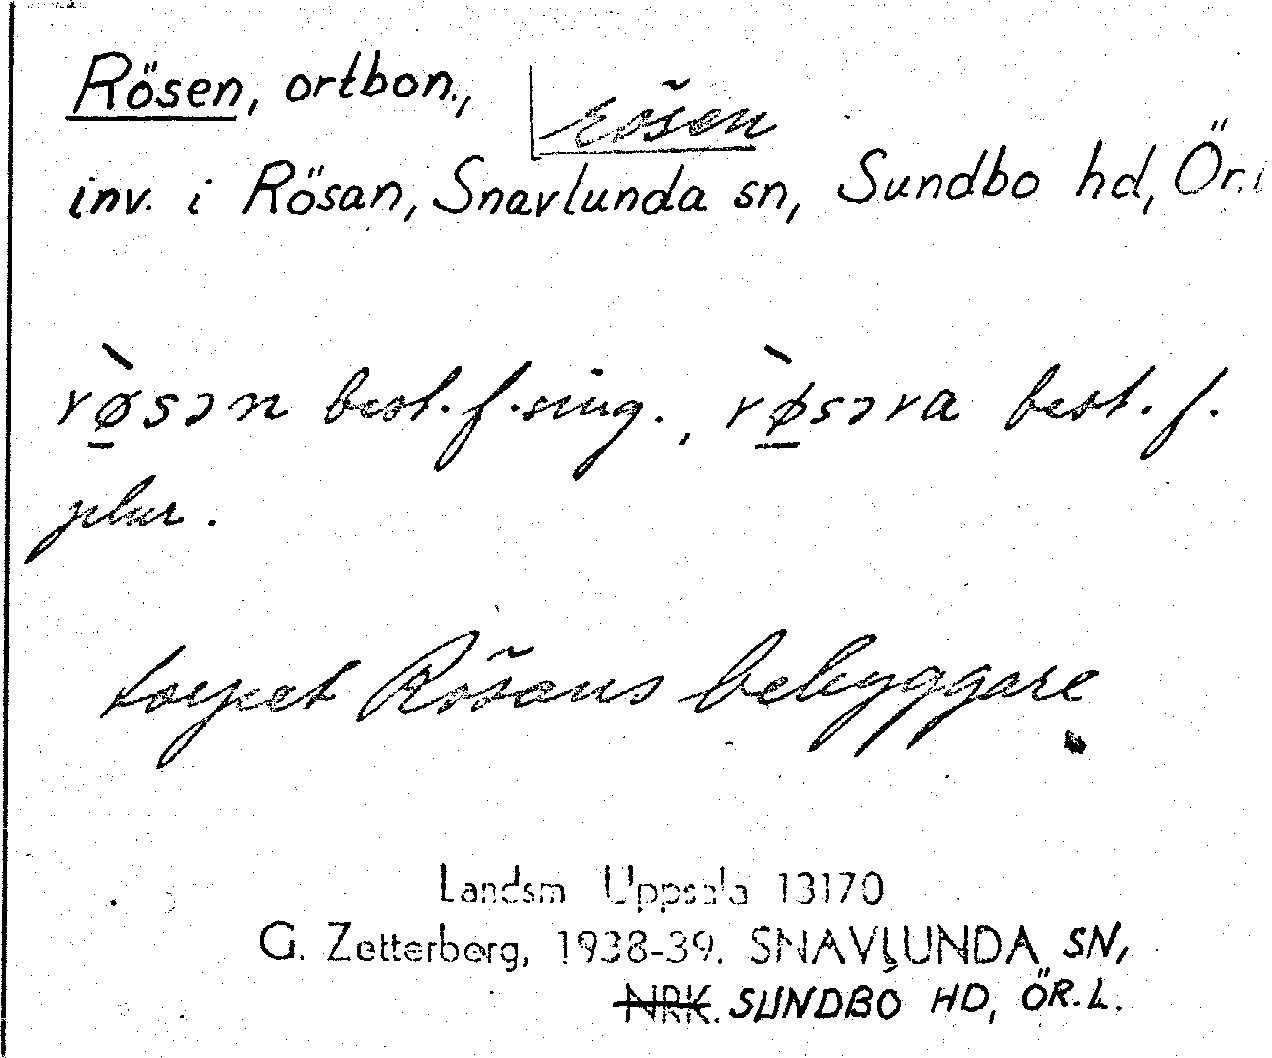 Rösen, ortbon.,
rösen
inv. i Rösan, Snavlunda sn, Sundbo hd, Ör.l
rø̠̀sən best. f. sing., rø̠̀səra best. f.
plur.
torpet Rösans bebyggare
Landsm Uppsala 13170
G. Zetterberg, 1938-39. SNAVLUNDA SN,
NRK. SUNDBO HD, ÖR.L.